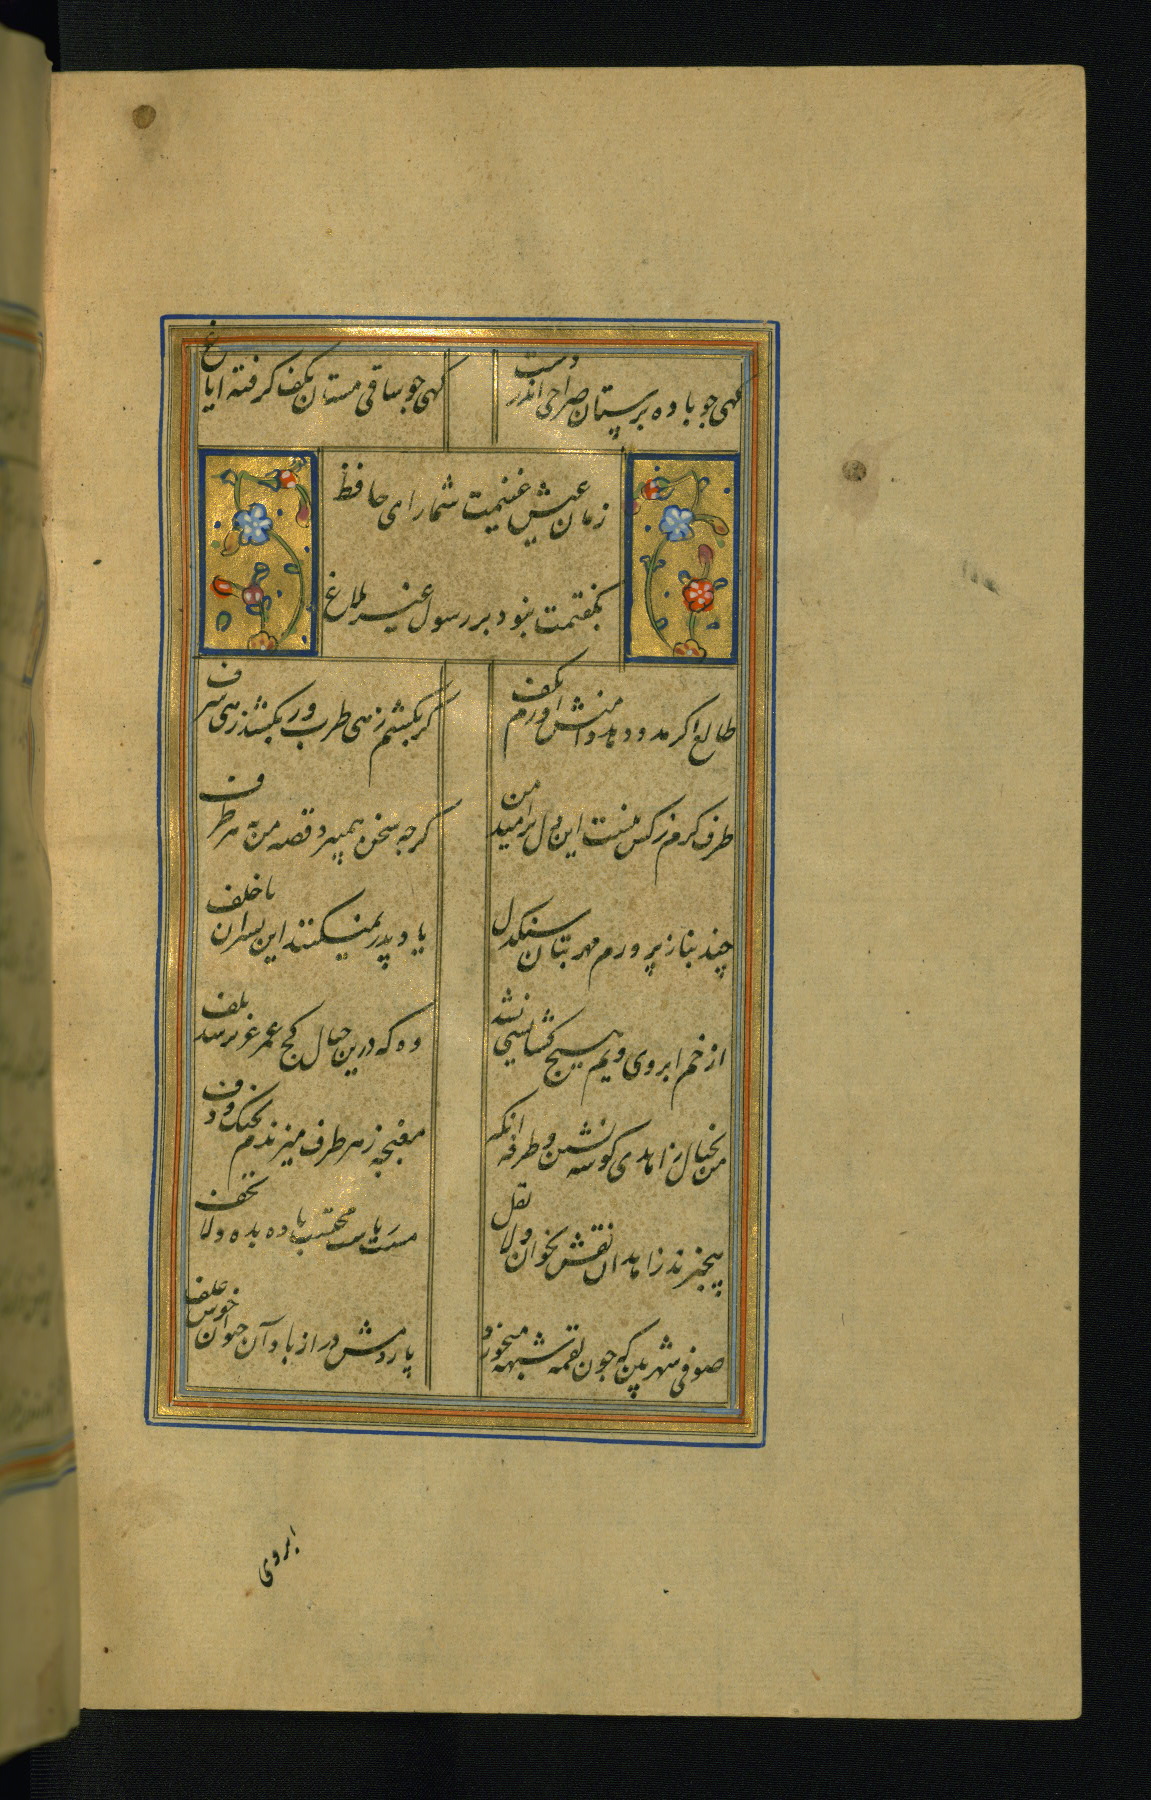 کهی جو باده برپرستان صراحی اندر دست
کهی جو ساقی مستان بکف کرفته ایاغ
زمان عیش غنیمت شمارای حافظ
بکفتمت نبود بر رسول غیر بلاغ
طالع اکر مدد دهد دامنش اورم بکف
کر بکشم زهی طرب ور بکشد زهی شرف
طرف کرم زکس نبست این دل پرامید من
کرجه سخن همیبرد قصه من به هر طرف
چند بناز پرورم مهر بتان سنکدل
یاد پدر نمیکنند این پسران ناخلف
از خم ابروی ویم هیچ کشایشی نشد
وه که درین خیال کج عمر عزیز شد تلف
من بخیال زاهدی کوشه نشین و طرفه انکه
مغبجه زهر طرف میزندم بجنک و دف
بیخبرند زاهدان نقش بخوان ولا تقل
مست ریاست محتسب باده بده ولا تخف
صوفی شهر بین که جون لقمه شبهه میخورد
پاردمش دراز باد آن حیوان خوش علف
ابروی